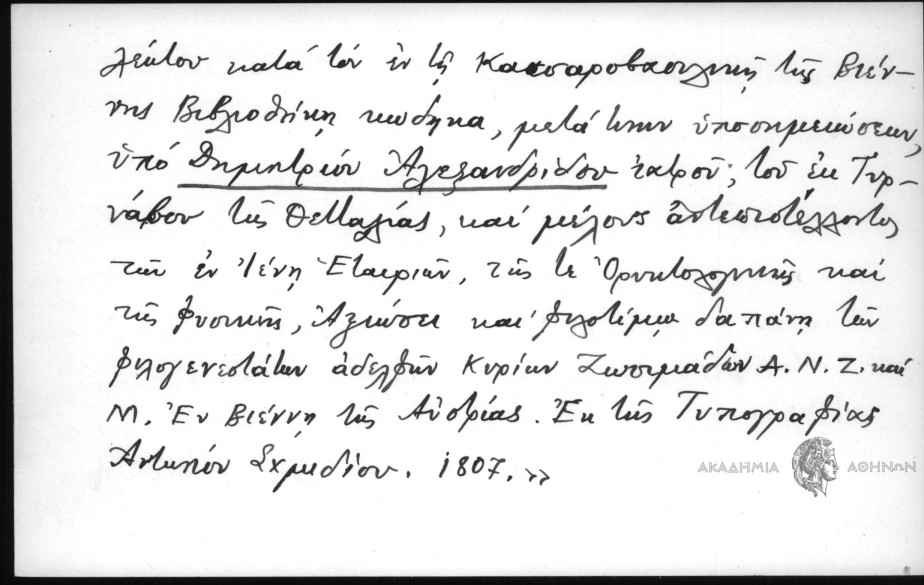 λέκτου κατά τόν ἐν τῇ Καισαροβασιλικῇ τῆς Βιέν-
νης Βιβλιοθήκῃ κώδηκα, μετά τινων ὑποσημειώσεων,
ὑπό Δημητρίου Ἀλεξανδρίδου ἰατροῦ, τοῦ ἐκ Τυρ-
νάβου τῆς Θετταλίας, καί μέλους ἀντεπιστέλλοντος
τῶν ἐν Ἰένῃ Ἑταιριῶν, τῆς τε Ὀρυκτολογικῆς καί
τῆς φυσικῆς, Ἀξιώσει καί φιλοτίμῳ δαπάνῃ τῶν
φιλογενεστάτων ἀδελφῶν Κυρίων Ζωσιμάδων Α. Ν. Ζ. καί
Μ. Ἐν Βιέννῃ τῆς Αὐστρίας. Ἐκ τῆς Τυπογραφίας
Ἀντωνίου Σχμιδίου. 1807.»
ΑΚΑΔΗΜΙΑ ΑΘΗΝΩΝ